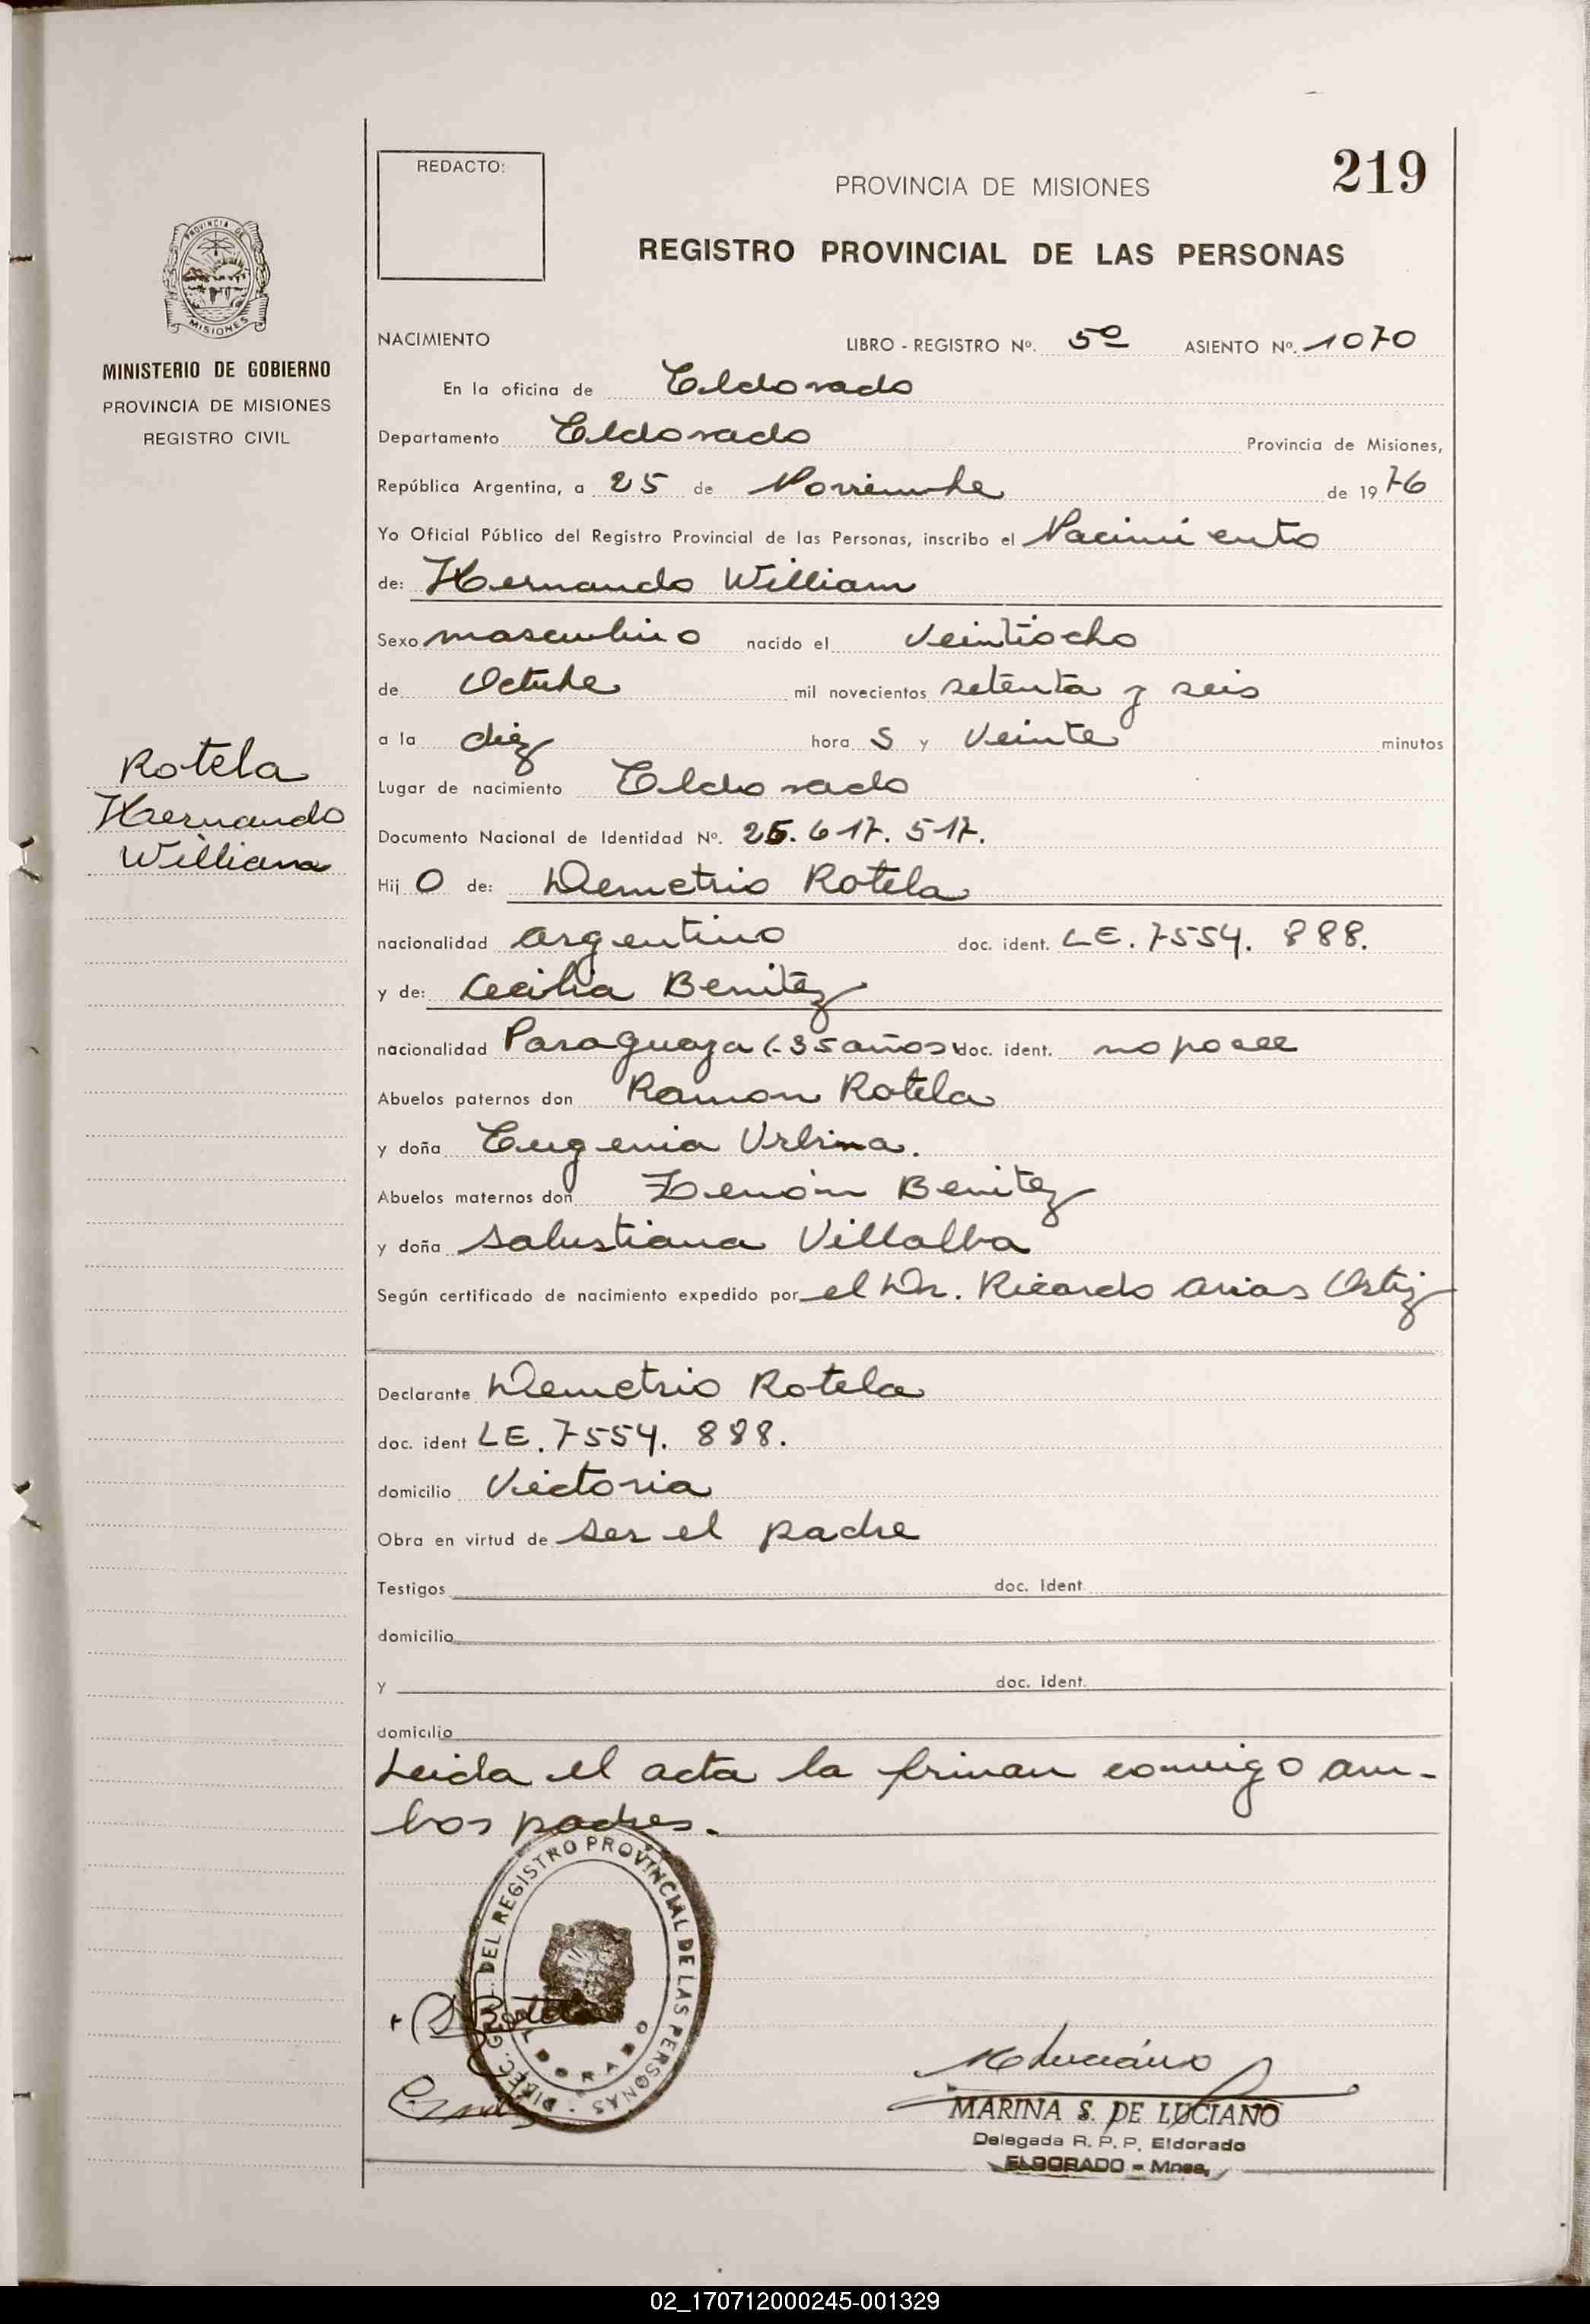 REDACTO:
PROVINCIA DE MISIONES
219
REGISTRO PROVINCIAL DE LAS PERSONAS
PROVINCIA DE
MISIONES
MINISTERIO DE GOBIERNO
PROVINCIA DE MISIONES
REGISTRO CIVIL
Rotela
Hernando
William
NACIMIENTO LIBRO - REGISTRO Nº. 5º ASIENTO Nº. 1070
En la oficina de Eldorado
Departamento Eldorado Provincia de Misiones,
República Argentina, a 25 de Noviembre de 1976
Yo Oficial Público del Registro Provincial de las Personas, inscribo el Nacimiento
de: Hernando William
Sexo masculino nacido el Veintiocho
de Octubre mil novecientos setenta y seis
a la diez hora s y Veinte minutos
Lugar de nacimiento Eldorado
Documento Nacional de Identidad Nº. 25.617.517.
Hij o de: Demetrio Rotela
nacionalidad argentino doc. ident. LE. 7554. 888.
y de: Cecilia Benitez
nacionalidad Paraguaya (35 años) doc. ident. no posee
Abuelos paternos don Ramon Rotela
y doña Eugenia Urbina.
Abuelos maternos don Zenón Benitez
y doña Salustiana Villalba
Según certificado de nacimiento expedido por el Dr. Ricardo Arias Ortiz
Declarante Demetrio Rotela
doc. ident LE. 7554. 888.
domicilio Victoria
Obra en virtud de ser el padre
Testigos doc. ident.
domicilio
y doc. ident.
domicilio
Leida el acta la firman conmigo am-
bos padres.
DIREC. GRAL. DEL REGISTRO PROVINCIAL DE LAS PERSONAS
ELDORADO
Rotela
MARINA S. DE LUCIANO
Delegada R. P. P. Eldorado
ELDORADO - Mnes.
02_170712000245-001329